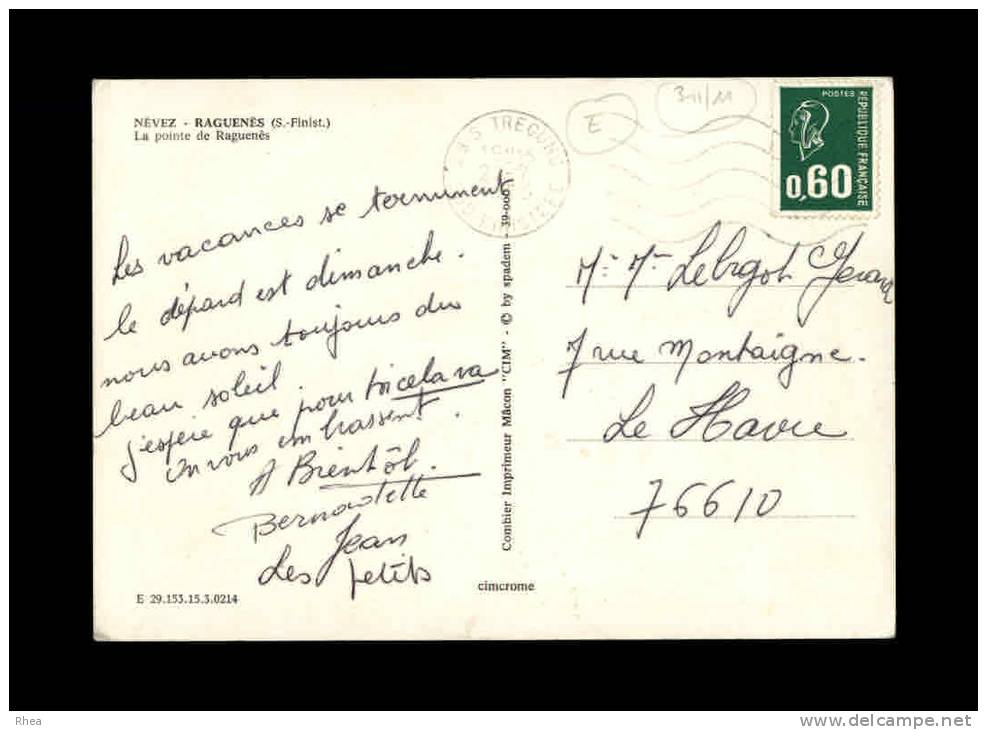 NÉVEZ - RAGUENÈS (S.-Finist.)
La pointe de Raguenès
Les vacances se terminent
le dépard est dimanche.
nous avons toujours du
beau soleil.
J'espère que pour toi cela va
On vous embrassent.
A Bientôt.
Bernadette
Jean
Les petits
E 29.153.15.3.0214
Combier Imprimeur Mâcon "CIM" - © by spadem - 39-000
cimcrome
TREGUNC
FINISTERE
E
311/11
POSTES
RÉPUBLIQUE FRANÇAISE
0,60
Mr Me Lebigot Gerard
7 rue Montaigne.
Le Havre
76610
Rhea
www.delcampe.net